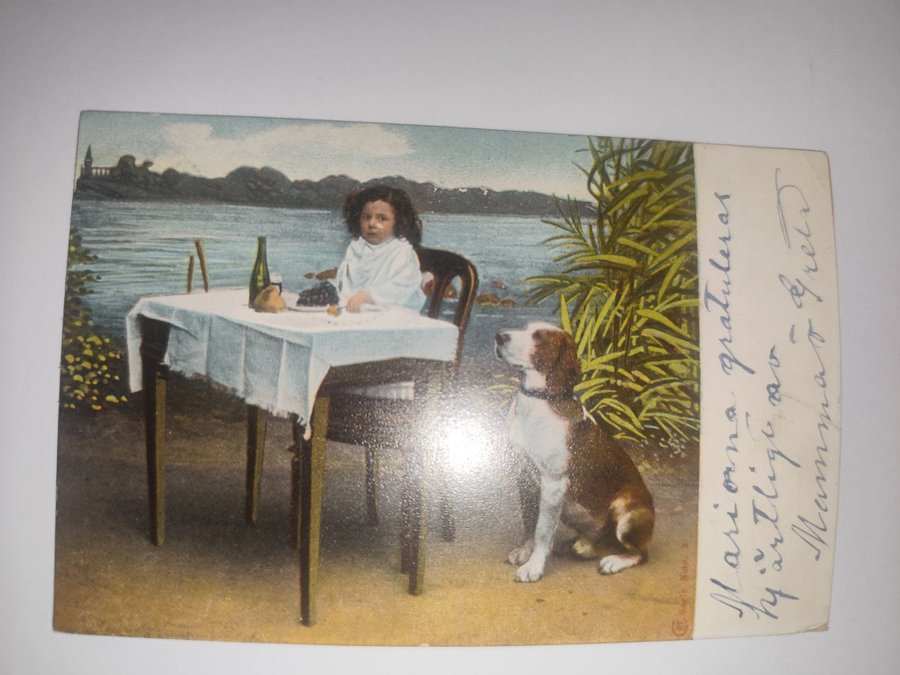 Mariorna gratuleras
hjärtligt av
Mamma o Greta